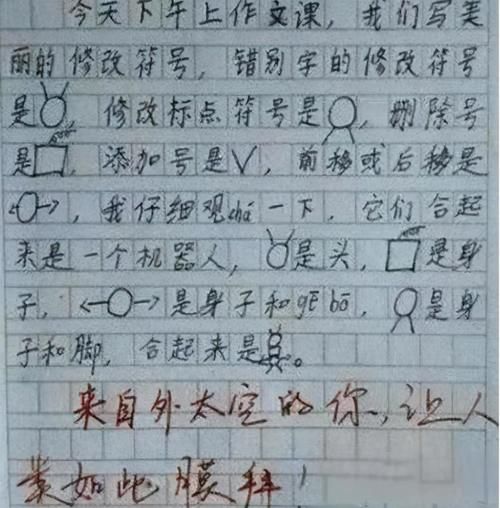 今天下午上作文课，我们写美
丽的修改符号，错别字的修改符号
是，修改标点符号是，删除号
是，添加号是V，前移或后移是
，我仔细观chá一下，它们合起
来是一个机器人，是头，是身
子，是身子和gē bō，是身
子和脚，合起来是。
来自外太空的你，让人
类如此膜拜！